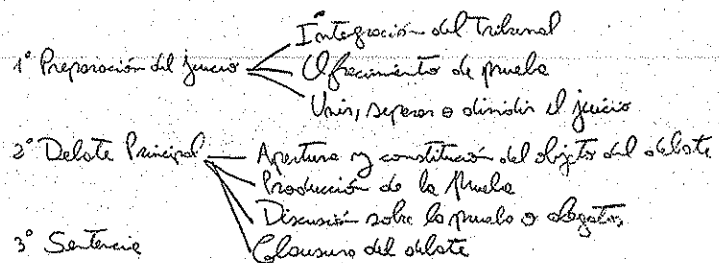 Integración del tribunal
1° Preparación del juicio
Ofrecimiento de prueba
Unir, separar o dividir el juicio
2° Debate Principal
Apertura y constitución del objeto del debate
Producción de la prueba
Discusión sobre la prueba o alegatos
3° Sentencia
Clausura del debate